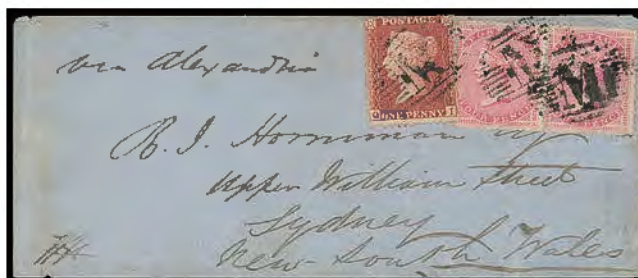 POSTAGE
ONE PENNY
via Alexandria
R. J. Horniman Esq
Upper William Street
Sydney
New South Wales